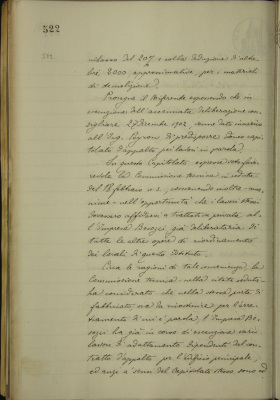 522
ribasso del 20% e colla deduzione di altre
lire 2000 approssimative per i materiali
di demolizione.
Prosegue il Riferente esponendo che in
esecuzione dell'accennata deliberazione con-
sigliare 29 Dicembre 1902, venne dato incarico
all'Ing. Peyron di predisporre
d'appalto pei lavori in parola.
Su questo Capitolato espresse voto favo-
revole la Commissione tecnica in seduta
del 18 febbraio u.s., convenendo unanime
nell'opportunità che i lavori stessi
dovessero affidarsi a trattativa privata al-
l'Impresa già deliberataria di
tutte le altre opere di riordinamento
dei locali di questo Istituto.
Circa le ragioni di tale convenienza, la
Commissione tecnica nella citata seduta
ha considerato che nella stessa parte di
fabbricato, ove
di cui è parola, l'Impresa
ha già in corso di esecuzione varii
lavori di adattamento dipendenti dal con-
tratto d'appalto per l'edificio principale,
ed anzi a sensi del Capitolato stesso sono